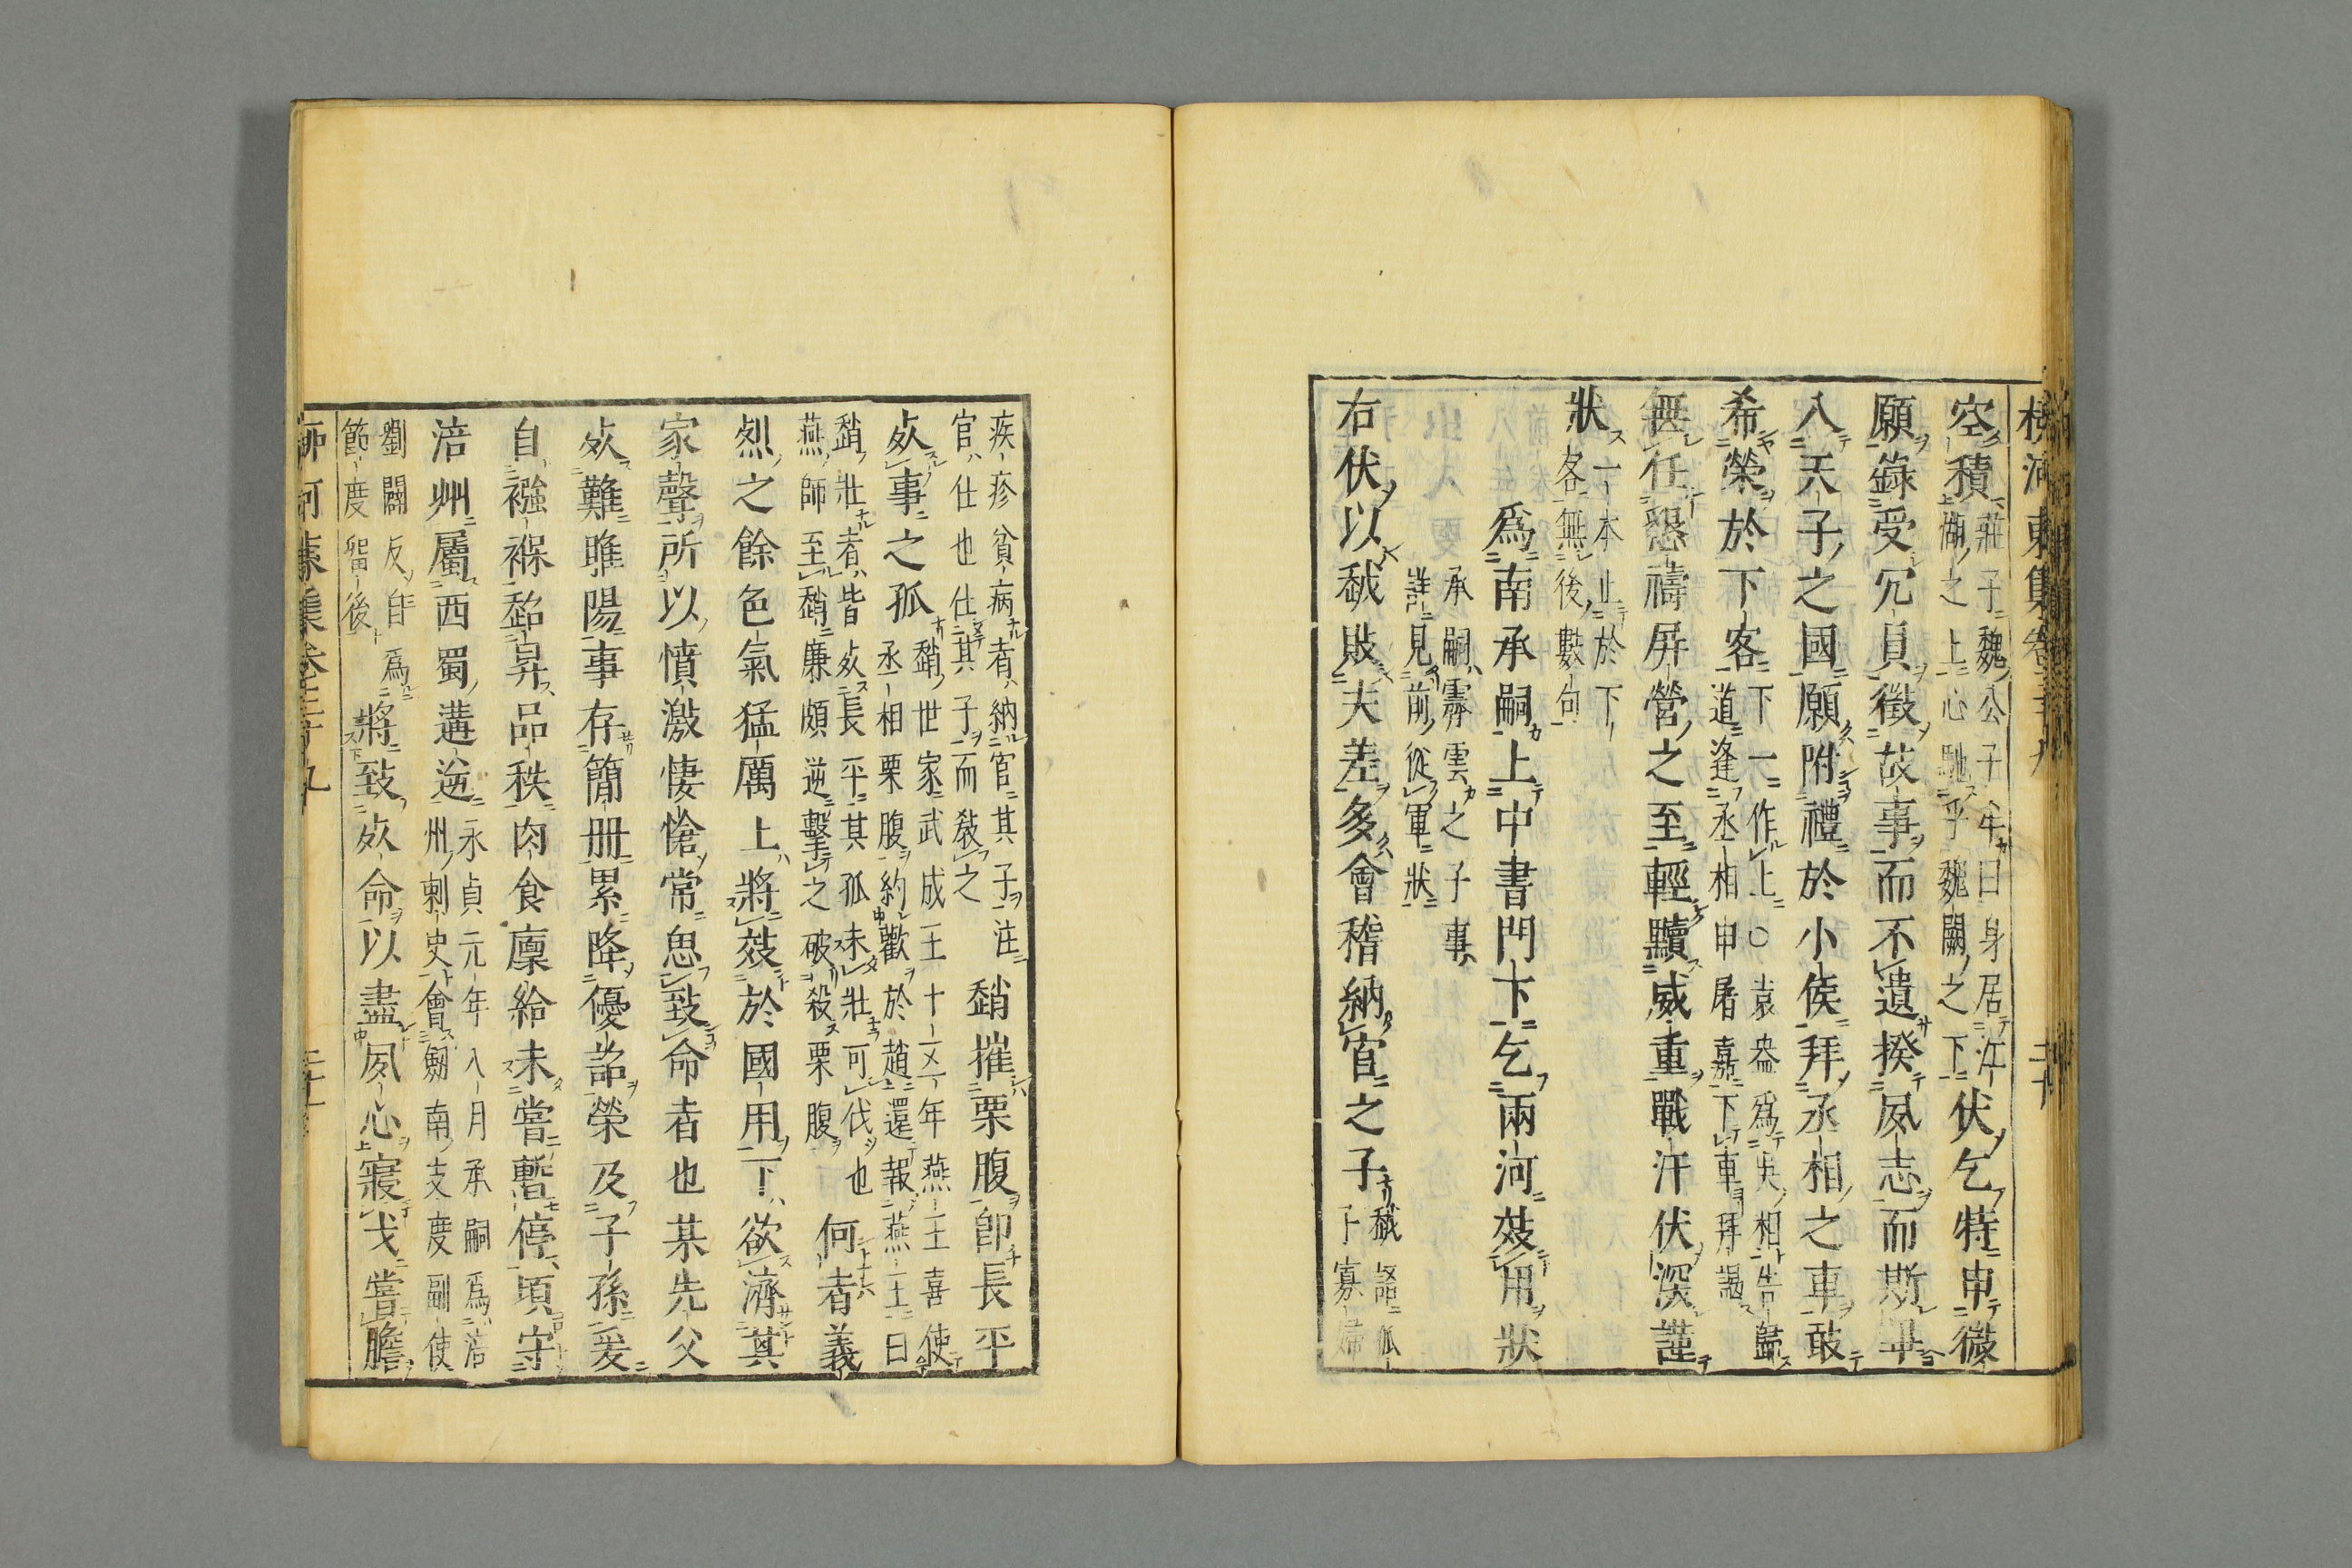 柳河東集卷三十九 二十
空積
莊子魏公子牟曰身居江
湖之上心馳乎魏闕之下
伏乞特申微
願錄受冗員徵故事而不遺揆夙志而斯畢
入天子之國願附禮於小侯拜丞相之車敢
希榮於下客
下一作上○袁盎爲吳相告歸
道逢丞相申屠嘉下車拜謁
無任懇禱屏營之至輕黷威重戰汗伏深謹
狀
一本止於下
客無後數句
爲南承嗣上中書門下乞兩河効用狀
承嗣霽雲之子事
詳見前從軍狀
右伏以越敗夫差多會稽納官之子
越語孤
子寡婦
疾疹貧病者納官其子注
官仕也仕其子而敎之
趙摧栗腹卽長平
死事之孤
趙世家武成王十五年燕王喜使
丞相栗腹約歡於趙還報燕王曰
趙壯者皆死長平其孤未壯可伐也
燕師至趙廉頗逆擊之破殺栗腹
何者義
烈之餘色氣猛厲上將効於國用下欲濟其
家聲所以憤激悽愴常思致命者也某先父
死難睢陽事存簡冊累降優詔榮及子孫爰
自襁褓超昇品秩肉食廩給未嘗暫停頃守
涪州屬西蜀遘逆
永貞元年八月承嗣爲涪
州刺史會劔南支度副使
劉闢反自爲
節度留後
將致死命以盡夙心寢戈嘗膽
柳河東集卷三十九 二十一